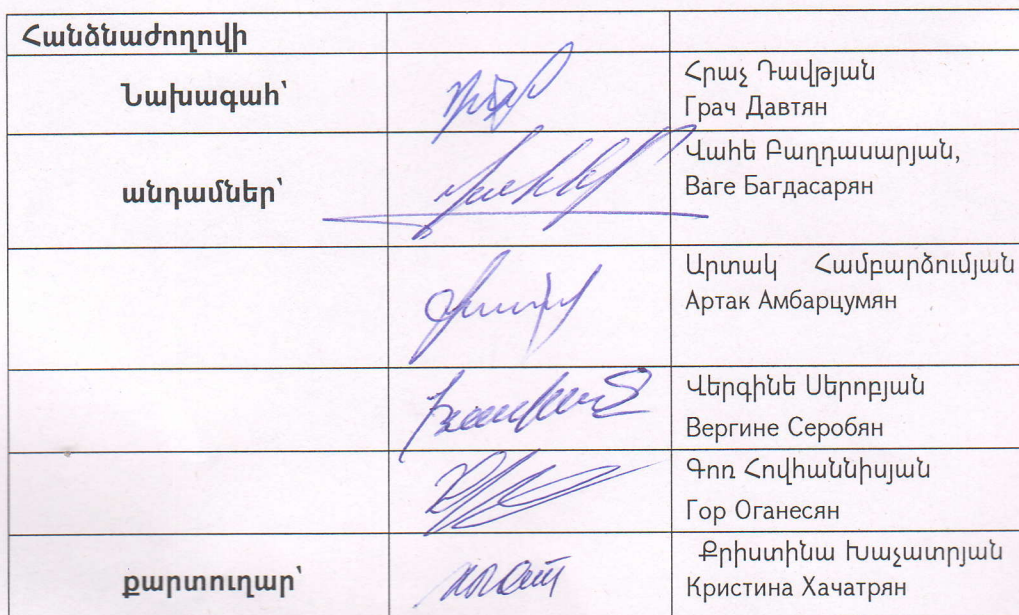 Հանձնաժողովի
Նախագահ՝
Հրաչ Դավթյան
Грач Давтян
անդամներ՝
Վահե Բաղդասարյան,
Ваге Багдасарян
Արտակ Համբարձումյան
Артак Амбарцумян
Վերգինե Սերոբյան
Вергине Серобян
Գոռ Հովհաննիսյան
Гор Оганесян
քարտուղար՝
Քրիստինա Խաչատրյան
Кристина Хачатрян